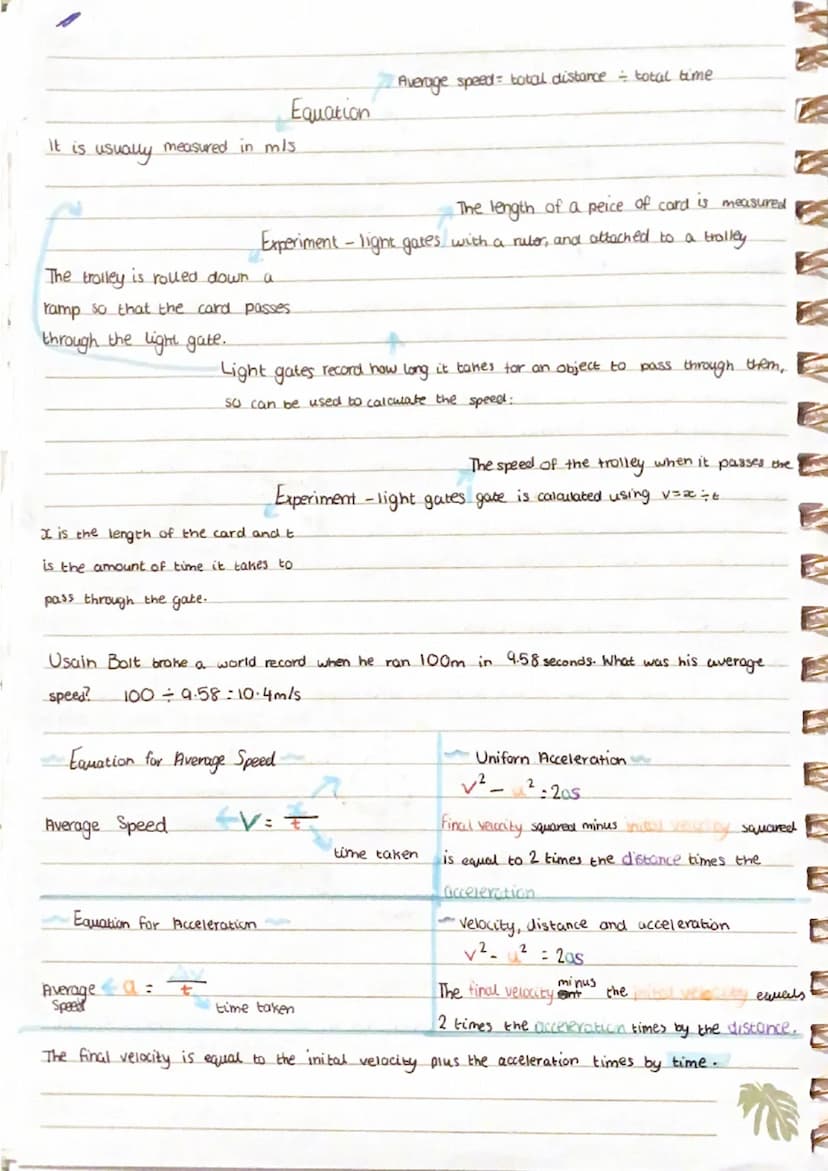 Average speed= total distance ÷ total time
Equation
It is usually measured in m/s
The length of a peice of card is measured
Experiment – light gates with a ruler, and attached to a trolley
The trolley is rolled down a
ramp so that the card passes
through the light gate.
Light gates record how long it takes for an object to pass through them,
so can be used to calculate the speed:
The speed of the trolley when it passes the
Experiment – light gates gate is calculated using v=x÷t
x is the length of the card and t
is the amount of time it takes to
pass through the gate.
Usain Bolt broke a world record when he ran 100m in 9.58 seconds. What was his average
speed? 100 ÷ 9.58 = 10.4m/s
Equation for Average Speed
Average Speed V = x/t
time taken
Uniform Acceleration
v² – u² = 2as
Final velocity squared minus initial velocity squared
is equal to 2 times the distance times the
acceleration
Equation for Acceleration
Average Speed a = Δv/t
time taken
Velocity, distance and acceleration
v² - u² = 2as
The final velocity minus the initial velocity equals
2 times the acceleration times by the distance.
The final velocity is equal to the inital velocity plus the acceleration times by time.